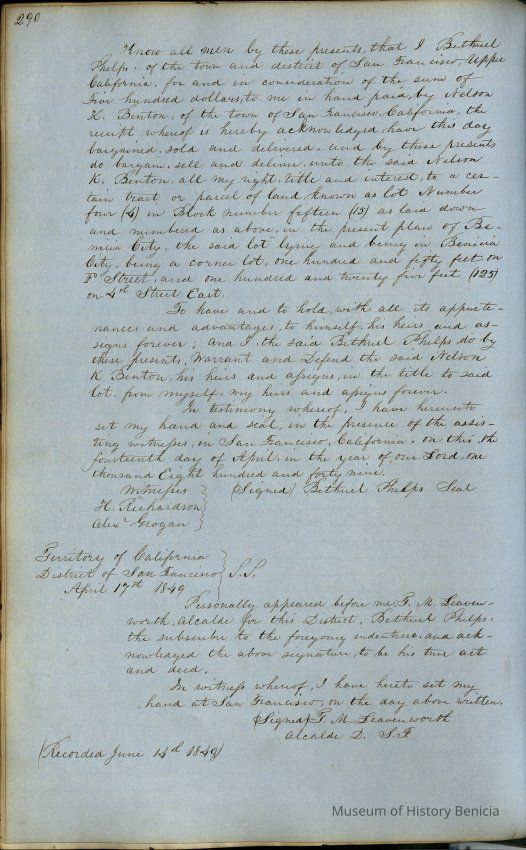 290
Know all men by these presents, that I Bethuel
Phelps, of the town and district of San Francisco, Upper
California, for and in consideration of the sum of
Five hundred dollars, to me in hand paid, by Nelson
K. Benton, of the town of San Francisco, California, the
receipt whereof is hereby acknowledged, have this day
bargained, sold and delivered, and by these presents
do bargain, sell and deliver, unto the said Nelson
K. Benton, all my right, title and interest, to a cer-
tain tract or parcel of land known as lot Number
four (4) in Block number fifteen (15) as laid down
and numbered as above, in the present plan of Be-
nicia City, the said lot lying and being in Benicia
City, being a corner lot, one hundred and fifty feet on
F Street, and one hundred and twenty five feet (125)
on 4th Street East.
To have and to hold, with all its apperte-
nances and advantages, to himself, his heirs and as-
signs forever; and I, the said Bethuel Phelps, do by
these presents, Warrant and Defend the said Nelson
K Benton, his heirs and assigns, in the title to said
lot, from myself, my heirs and assigns forever.
In testimony whereof, I have hereunto
set my hand and seal, in the presence of the assis-
ting witnesses, in San Francisco, California, on this the
fourteenth day of April, in the year of our Lord, one
thousand Eight hundred and forty nine.
Witnesses } (Signed) Bethuel Phelps Seal
H. Richardson
Alexr Grogan
Territory of California
District of San Francisco } S.S.
April 17th 1849
Personally appeared before me, T. M. Leaven-
worth, alcalde for this District, Bethuel Phelps,
the subscriber to the foregoing indenture, and ack-
nowledged the above signature, to be his true act
and deed.
In witness whereof, I have hereto set my
hand at San Francisco, on the day above written.
(Signed) T. M. Leavenworth
Alcalde D. S. F.
(Recorded June 14th 1849)
Museum of History Benicia